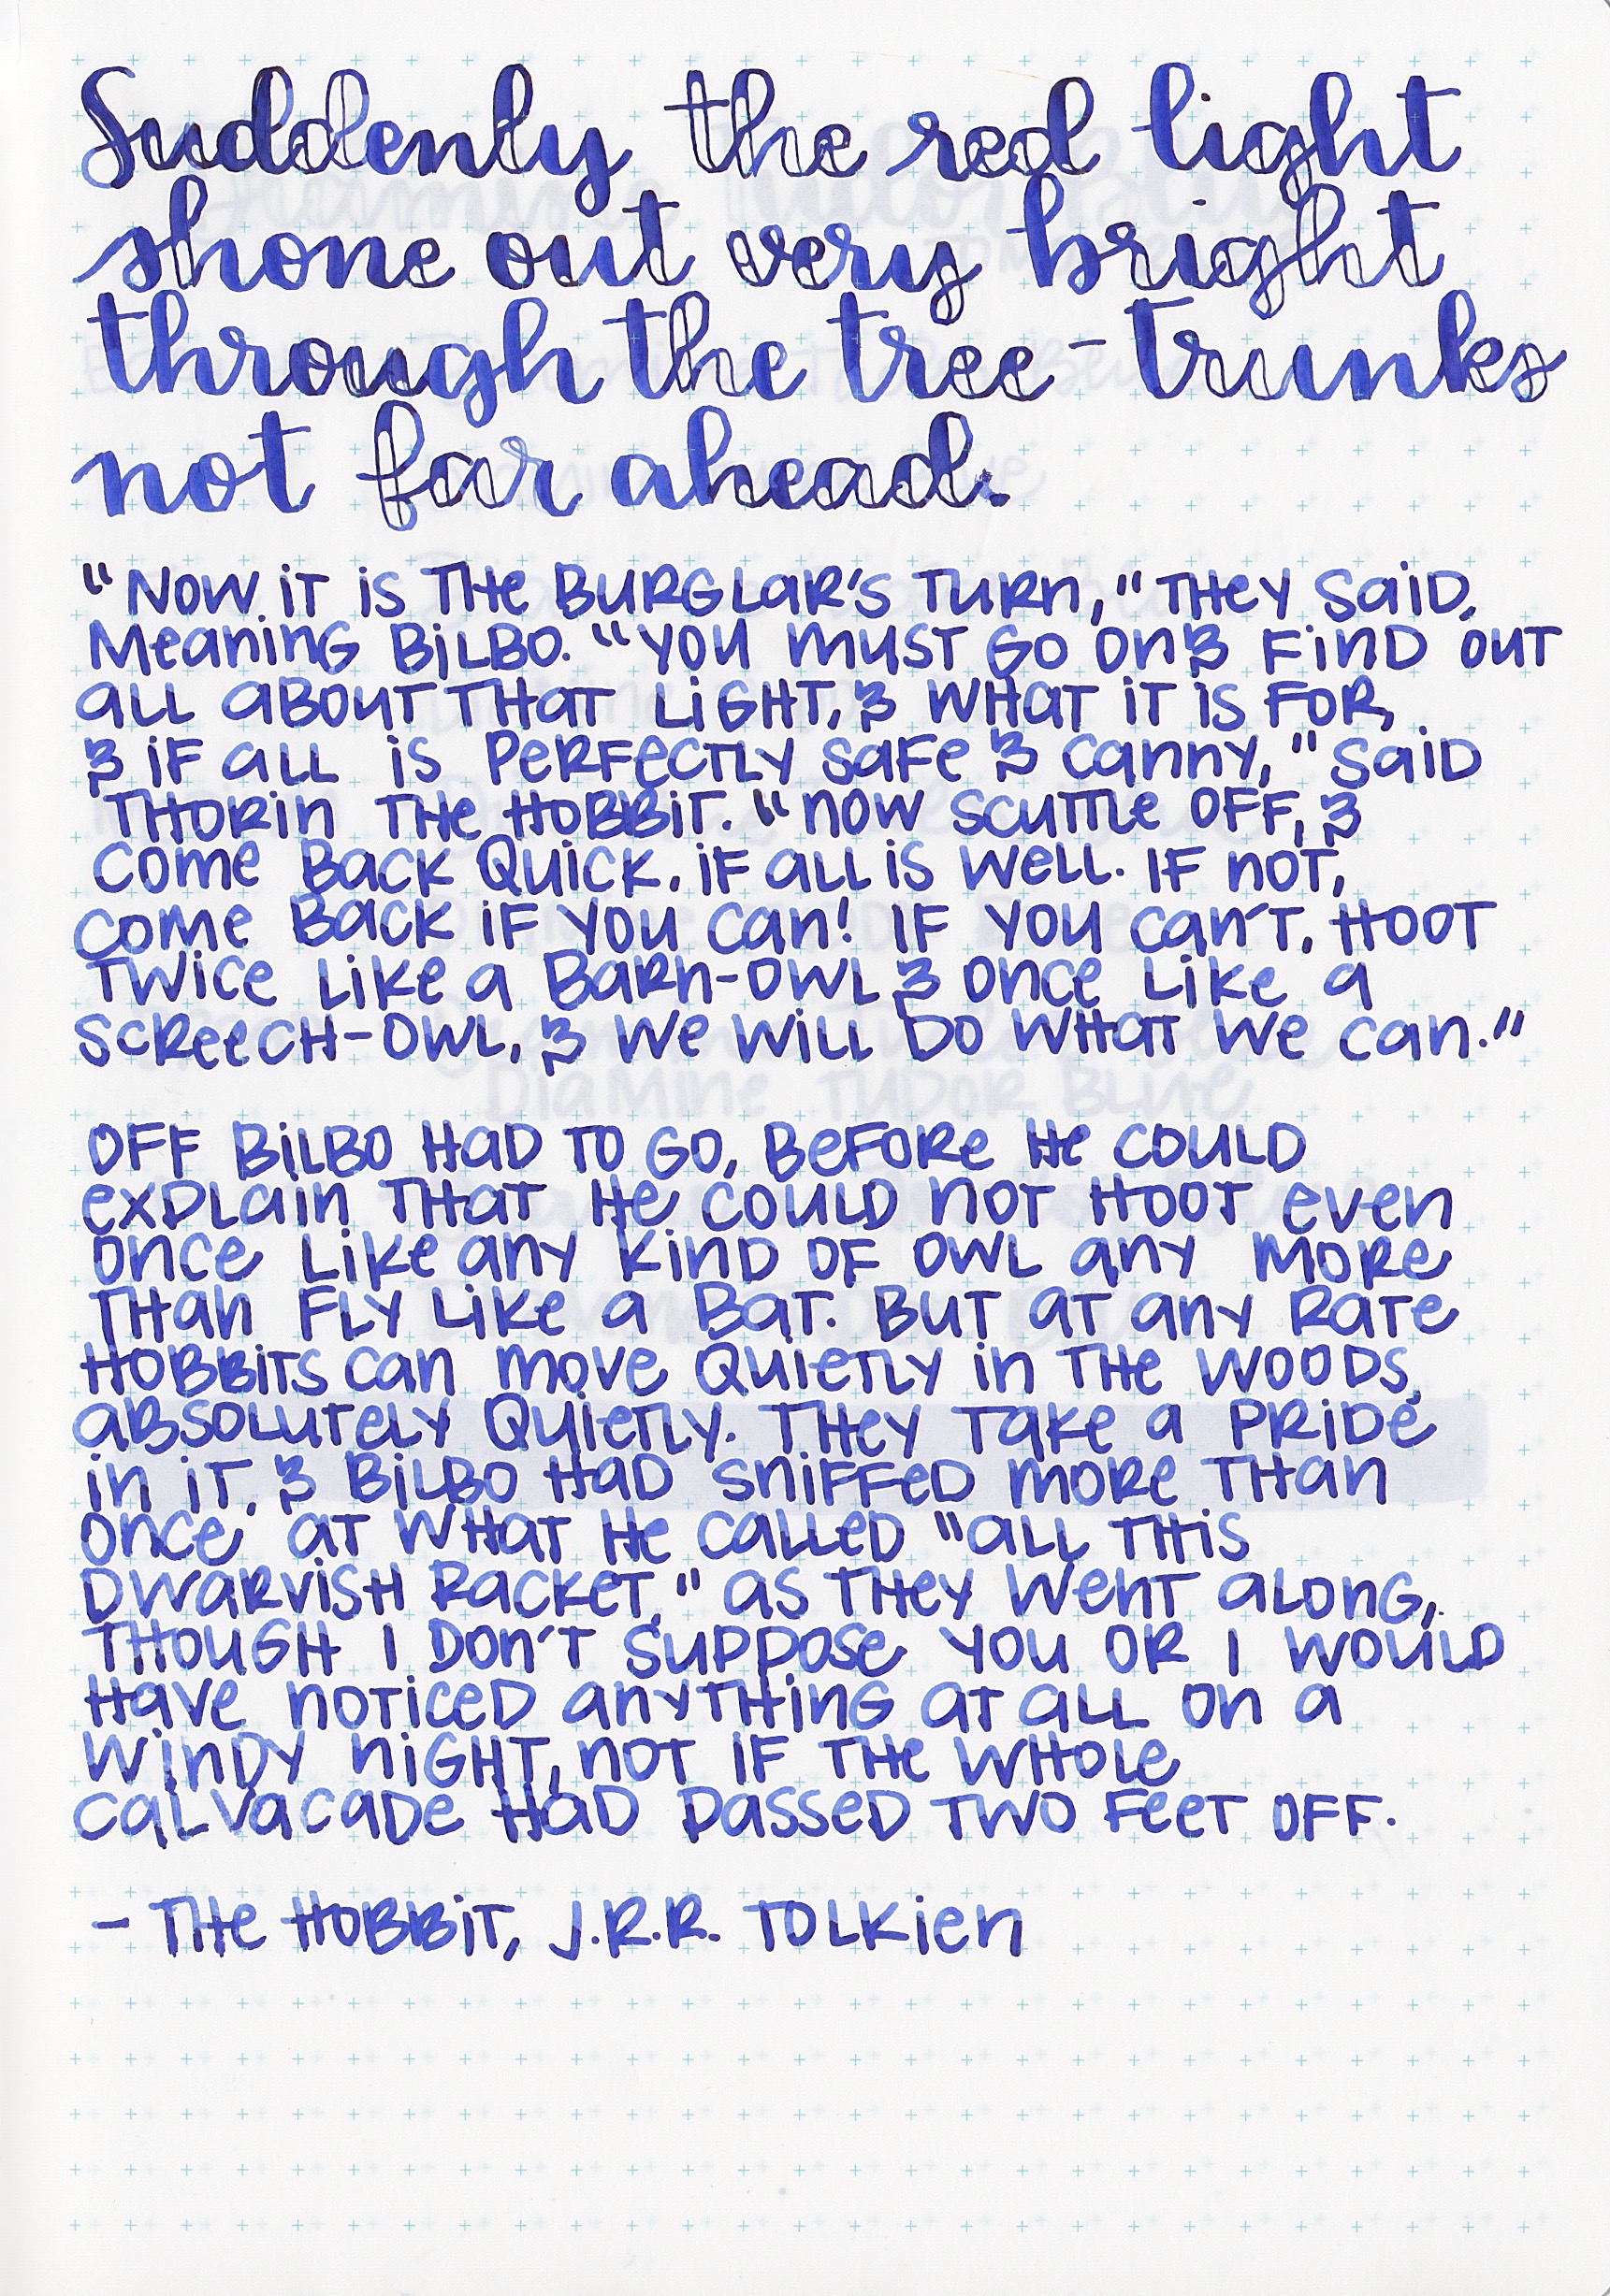 Suddenly the red light
shone out very bright
through the tree-trunks
not far ahead.
"Now it is the burglar's turn," they said,
meaning Bilbo. "You must go on & find out
all about that light, & what it is for,
& if all is perfectly safe & canny," said
Thorin the hobbit. "Now scuttle off, &
come back quick, if all is well. If not,
come back if you can! If you can't, hoot
twice like a barn-owl & once like a
screech-owl, & we will do what we can."
Off Bilbo had to go, before he could
explain that he could not hoot even
once like any kind of owl any more
than fly like a bat. But at any rate
hobbits can move quietly in the woods,
absolutely quietly. They take a pride
in it, & Bilbo had sniffed more than
once at what he called "all this
dwarvish racket," as they went along,
though I don't suppose you or I would
have noticed anything at all on a
windy night, not if the whole
calvacade had passed two feet off.
- The Hobbit, J.R.R. Tolkien
Diamine Tudor Blue